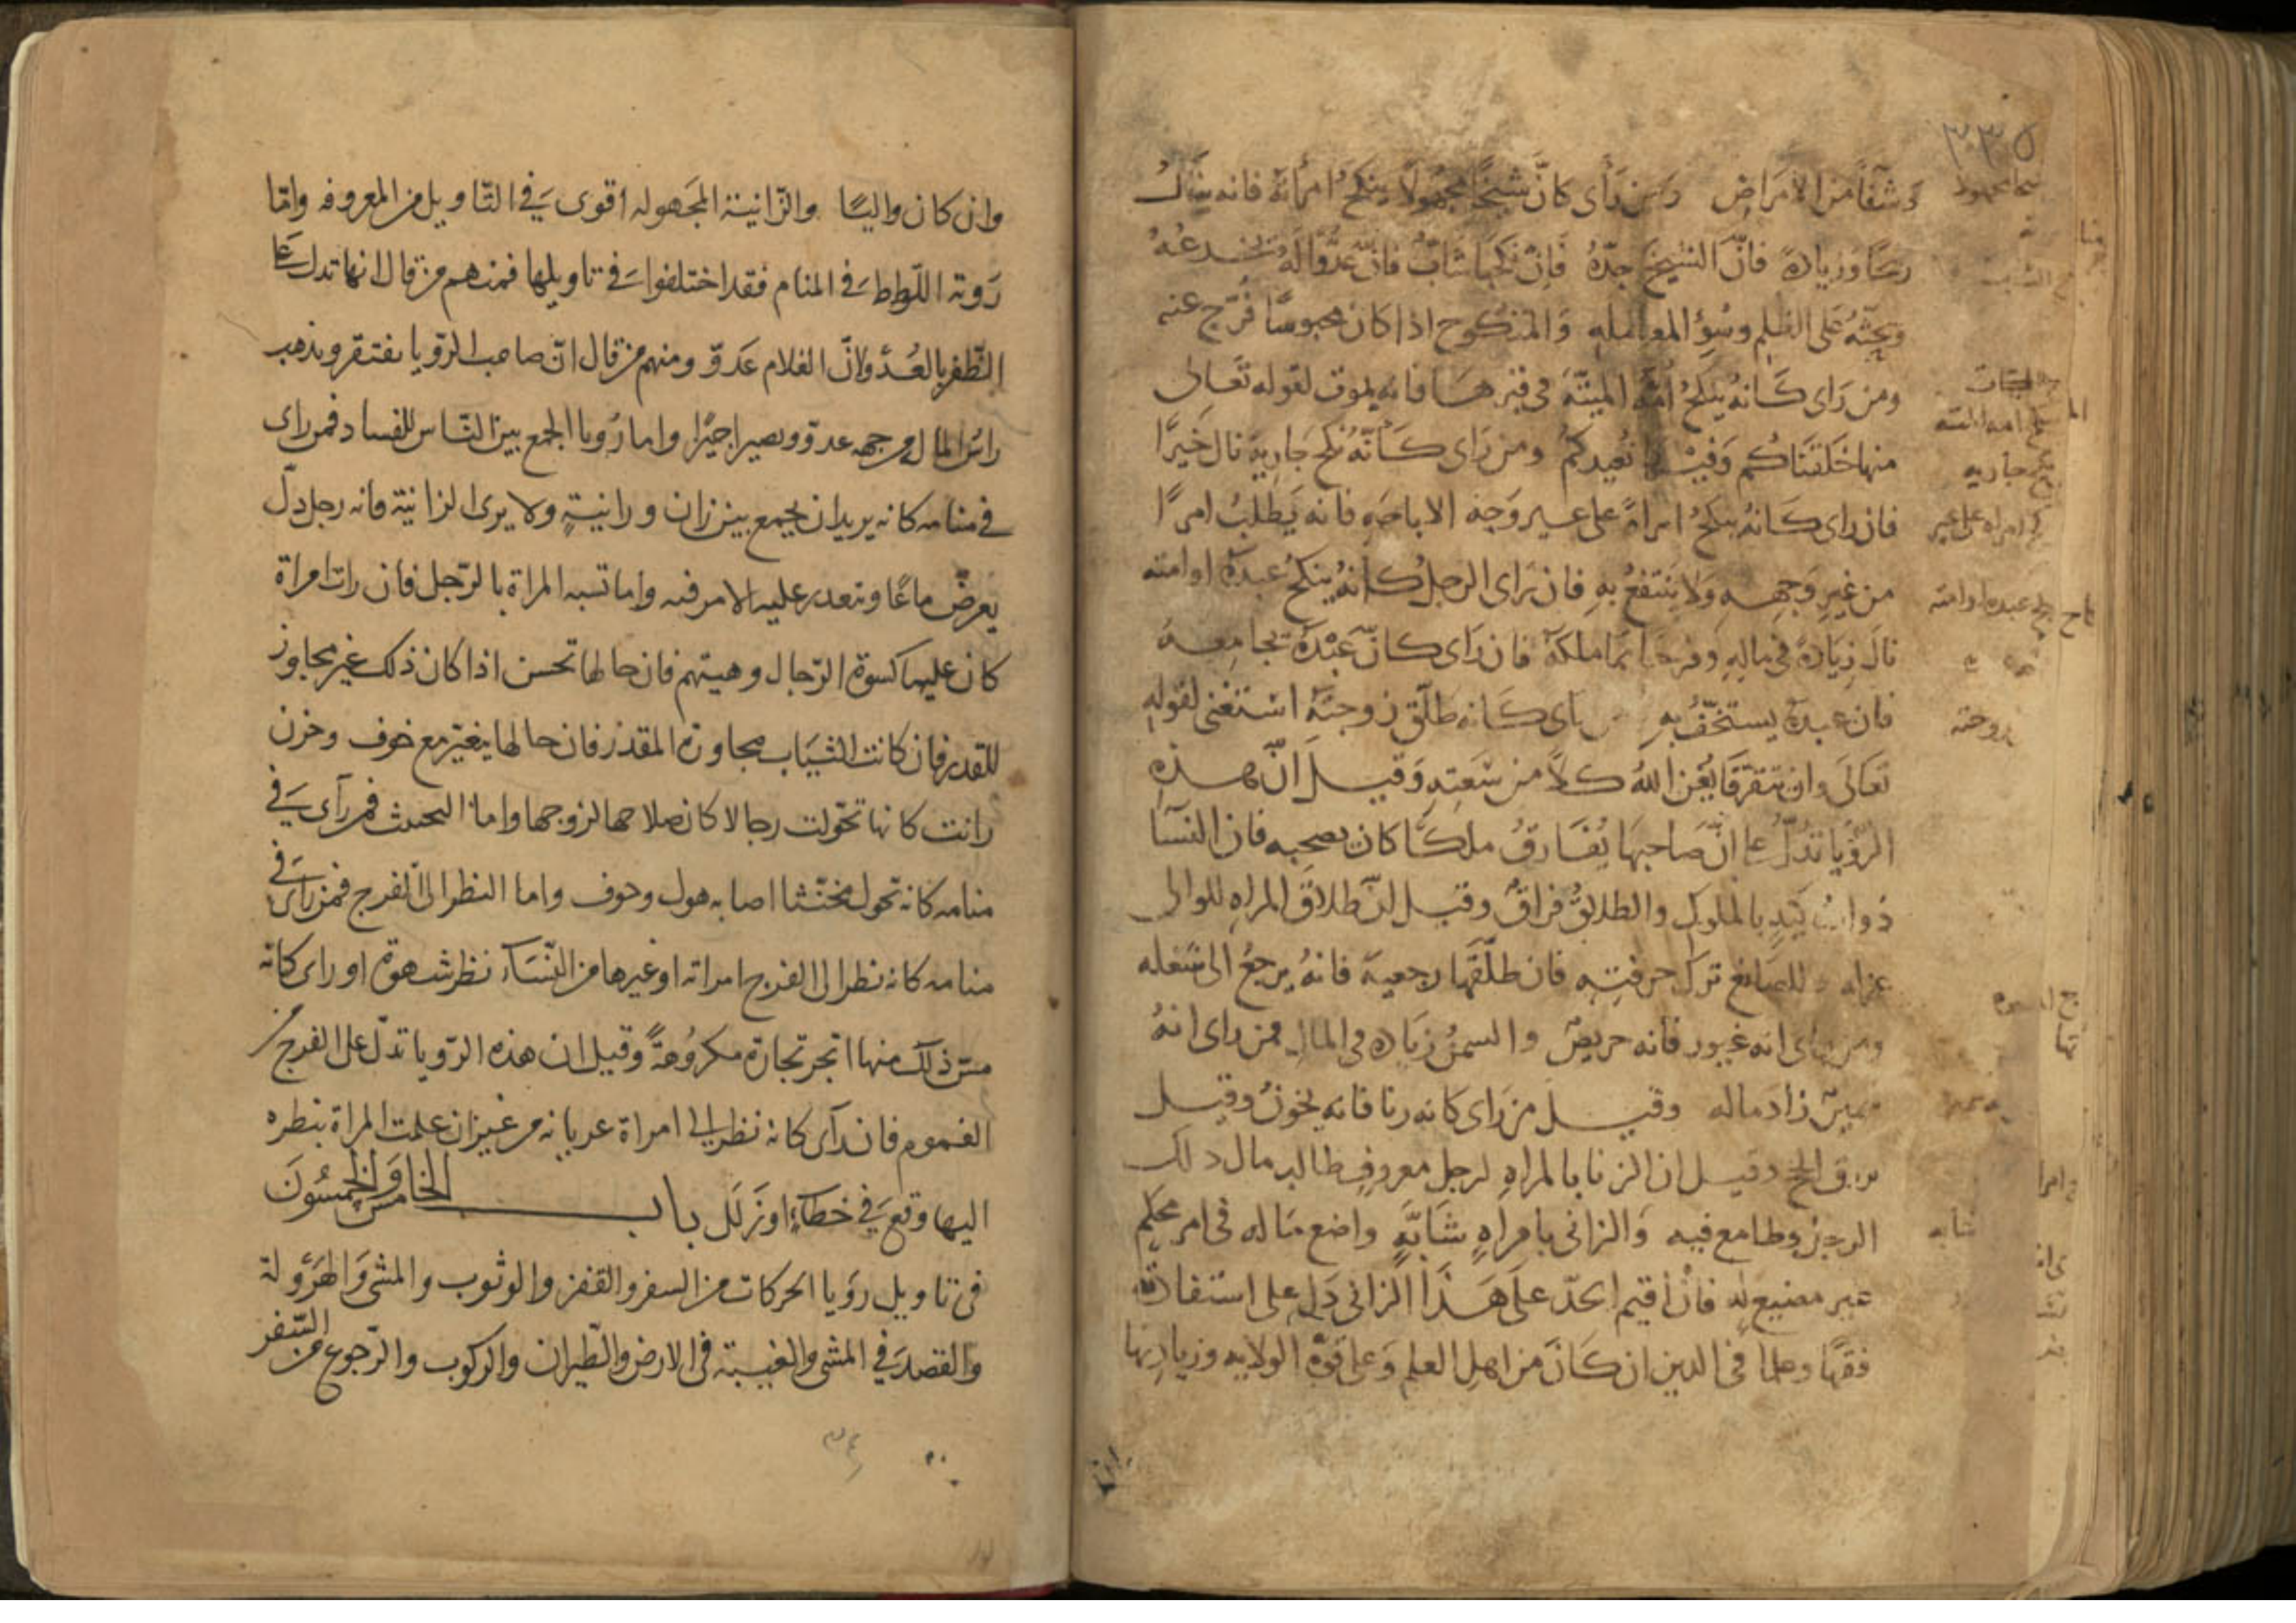 ٣٣٥
وشفاً من الامراض ومن رأى كانّ شيخًا مجهولًا ينكح امرأته فانه ينال
ربحًا وزيادة فانّ الشيخ جدّهُ فان نكحها شابّ فانّ عدّوًا له يخدعهُ
ويحثّه على الظلم وسُوء المعامله والمنكوح اذا كان محبوسًا فرّج عنه
ومن رَاى كانهُ ينكحُ اُمّهُ الميتّة في قبرها فانه يموت لقوله تعالى
منها خلقناكم وَفيها نُعيدكم ومن رَاى كَأنّهُ نكح جَارية نال خَيرًا
فان راى كَانهُ ينكحُ امراة على غير وَجه الاباحَهِ فانه يَطلبُ امرًا
من غيرِ وَجههِ وَلا يَنتفعُ بهِ فان رَاى الرجلُ كانهُ ينكحُ عبدهُ او امته
نالَ زيَادة في مالِهِ وفرحًا بما ملكهُ فان رَاى كانّ عَبْدهُ يجامعهُ
فان عبدهُ يستخفّ بهِ راى كَانه طلّق زوجتهُ استغنى لقوله
تعَالَى وان يتفرّقا يُغنِ اللهُ كلًّا من سَعَتِهِ وَقيلَ انّ هذهِ
الرؤيا تدُلّ على انّ صَاحبهَا يُفَارقُ ملكًا كان يصحبه فان النسَآ
ذوات كَيدٍ بالملوك والطلاقُ فراقٌ وقيل انّ طلاق المراهِ للوالى
عزله وللصانع ترك حرفتِهِ فان طلّقها رجعية فانهُ يرجعُ الى شغله
ومن راى انه غيور فانه حريصٌ والسمنُ زيَاده فى المال فمن راى انهُ
سمينٌ زادَ ماله وقيلَ من رَاى كانه زنا فانه يخونُ وقيل
يرزق الحج وقيل ان الزنا بالمراهِ لرجل معروفٍ طالب مال ذلك
الرجل وطامع فيه وَالزانى بامراهٍ شَابّهٍ واضع مَاله فى امر محكمٍ
غير مضيع له فان اُقيم الحدّ على هَذا الزانى دَل على استفادة
فقهًا وعلما فى الدين ان كَانَ من اهلِ العلم وَعلى قوّة الولايه وزيادتها
شيخا مجهولا
امه الميته
جاريه
امراه على غير
عبده او امته
زوجته
شابه
وان كان واليًا والزانية المجهوله اقوى فى التاويل من المعروفه وامّا
رَوية اللّواط فى المنام فقد اختلفوا فى تاويلها فمنهم من قال انها تدل على
الظّفر بالعدُوّ ولانّ الغلام عَدوّ ومنهم من قال انّ صاحب الرّويا يفتقر ويذهب
راسُ المال من جهه عدوّ ويصير اجيرًا واما رُويا الجمع بين النّاس للفساد فمن راى
في منامه كانه يريد ان يجمع بين زان وزانيةٍ ولا يرى الزانية فانه رجل دلّ
يعرضُ ماعًا ويتعذر عليه الامر فيه واما تشبه المراة بالرّجل فان رات امراة
كان عليها كسوة الرّجال وهيئتهم فان حالها تحسن اذا كان ذلك غير مجاوز
للقدر فان كانت الثيَاب مجاوزة المقدر فان حالها يتغيّر مع خوف وحزن
رانت كانها تحوّلت رجالا كان صلاحها لزوجها واما التخنث فمن رآى فى
منامه كانه تحول مخنّثا اصابه هول وخوف واما النظر الى الفرج فمن راى فى
منامه كانه نظر الى الفرج امراته او غيرها من النّسَاء نظر شهوة او راى كانه
مسّ ذلك منها اتجر تجارة مكروُهةً وقيل ان هذه الرّويا تدلّ على الفرج من
الغموم فان رآى كانه نظر الى امراة عريانه من غير ان علمت المراة بنظره
اليها وقعَ فى خطاءٍ اوزَلَل باب الخامس وَالخمسُونَ
فى تاويل رؤيا الحركات من السفر والقفز والوثوب والمشى وَالهرْولة
والقصد فى المشى والغيبة فى الارض والطّيران والركوب والرّجوع من السّفر